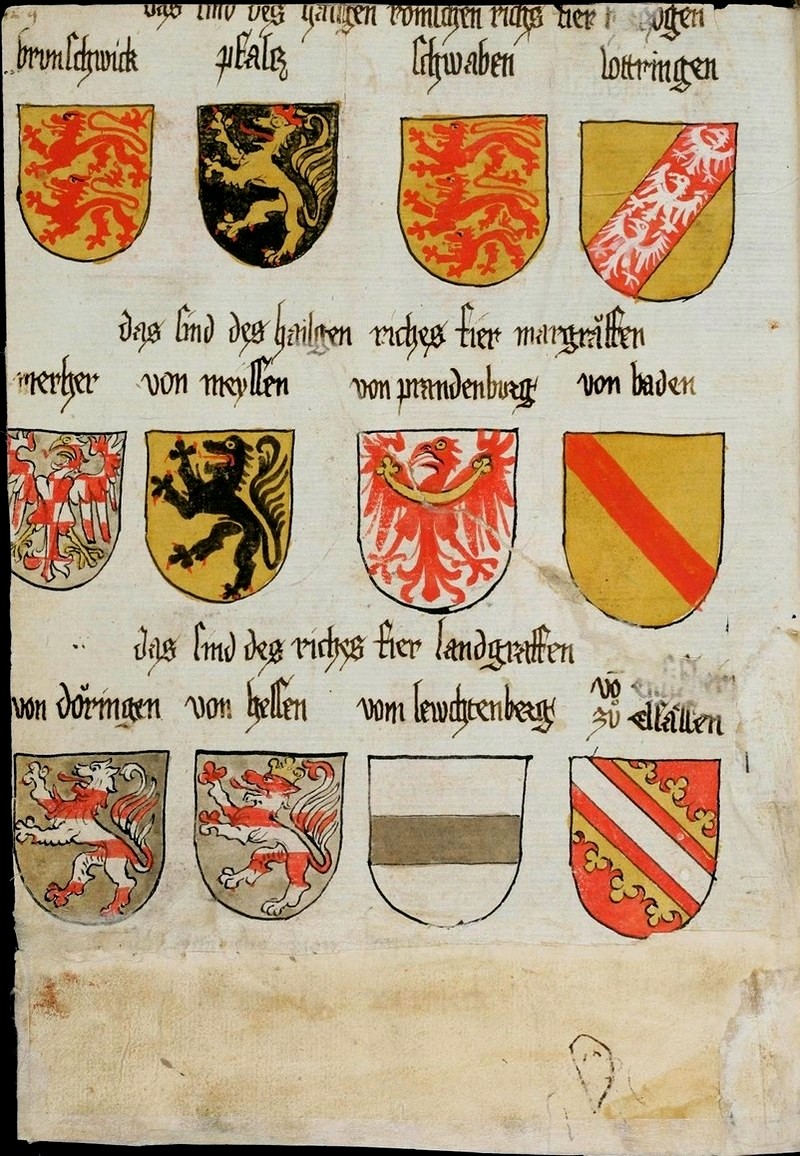 das sind des hailgen römschen richs fier
brunschwick pfalcz schwaben lottringen
das sind des hailgen riches fier margräffen
merher von meyssen von prandenburg von baden
das sind des riches fier landgraffen
von döringen von hessen vom lewchtenberg vō
zů elsässen